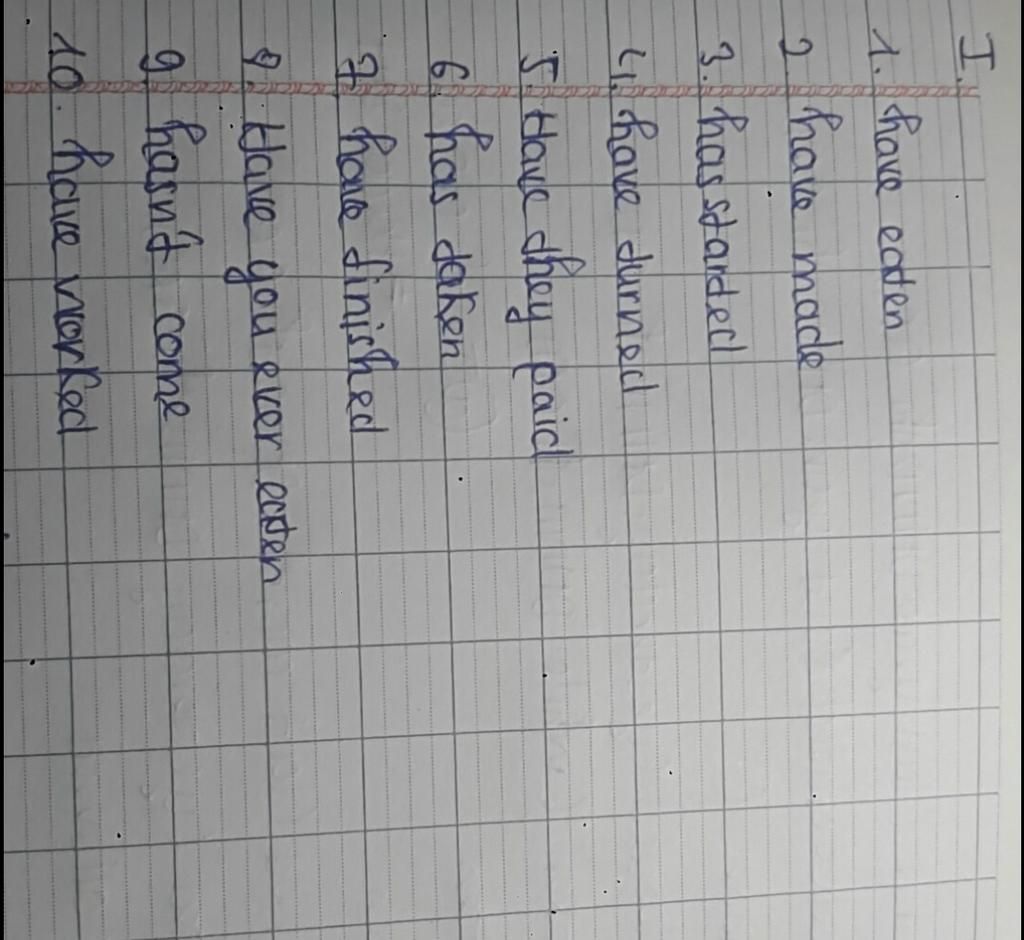 I.
1. have eaten
2 have made
3. has started
4. have turned
5. Have they paid
6. has taken
7. have finished
8. Have you ever eaten
9. hasn't come
10. have worked